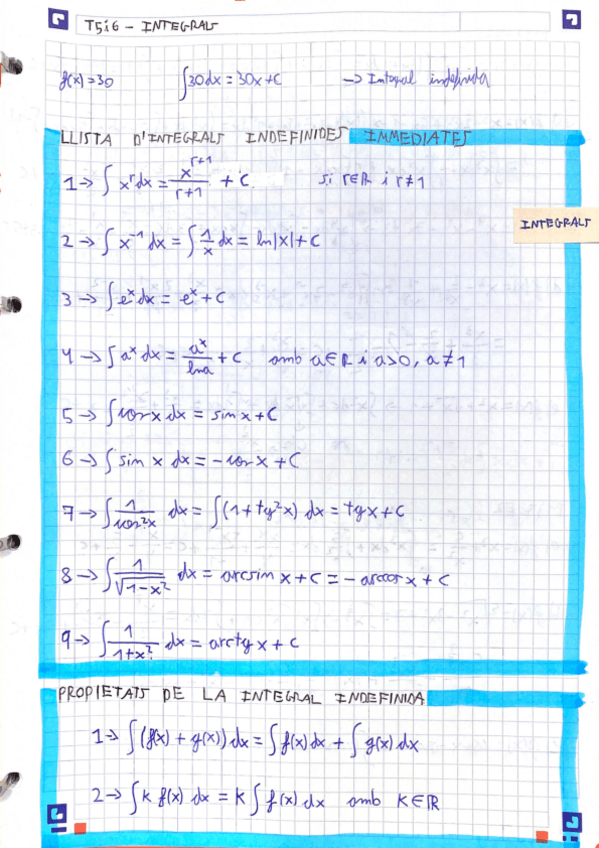 T5i6 - INTEGRALS
f(x)=30 ∫30dx = 30x+C → Integral indefinida
LLISTA D'INTEGRALS INDEFINIDES IMMEDIATES
1→ ∫ x^r dx = x^(r+1)/(r+1) + C si r∈ℝ i r≠1
INTEGRALS
2→ ∫ x^-1 dx = ∫ 1/x dx = ln|x|+C
3→ ∫ e^x dx = e^x + C
4→ ∫ a^x dx = a^x/lna + C amb a∈ℝ i a>0, a≠1
5→ ∫ cosx dx = sin x + C
6→ ∫ sin x dx = -cos x + C
7→ ∫ 1/cos²x dx = ∫(1+tg²x) dx = tgx + C
8→ ∫ 1/√(1-x²) dx = arcsin x + C = -arccos x + C
9→ ∫ 1/(1+x²) dx = arctg x + C
PROPIETATS DE LA INTEGRAL INDEFINIDA
1→ ∫(f(x) + g(x)) dx = ∫ f(x) dx + ∫ g(x) dx
2→ ∫ K f(x) dx = K ∫ f(x) dx amb K∈ℝ